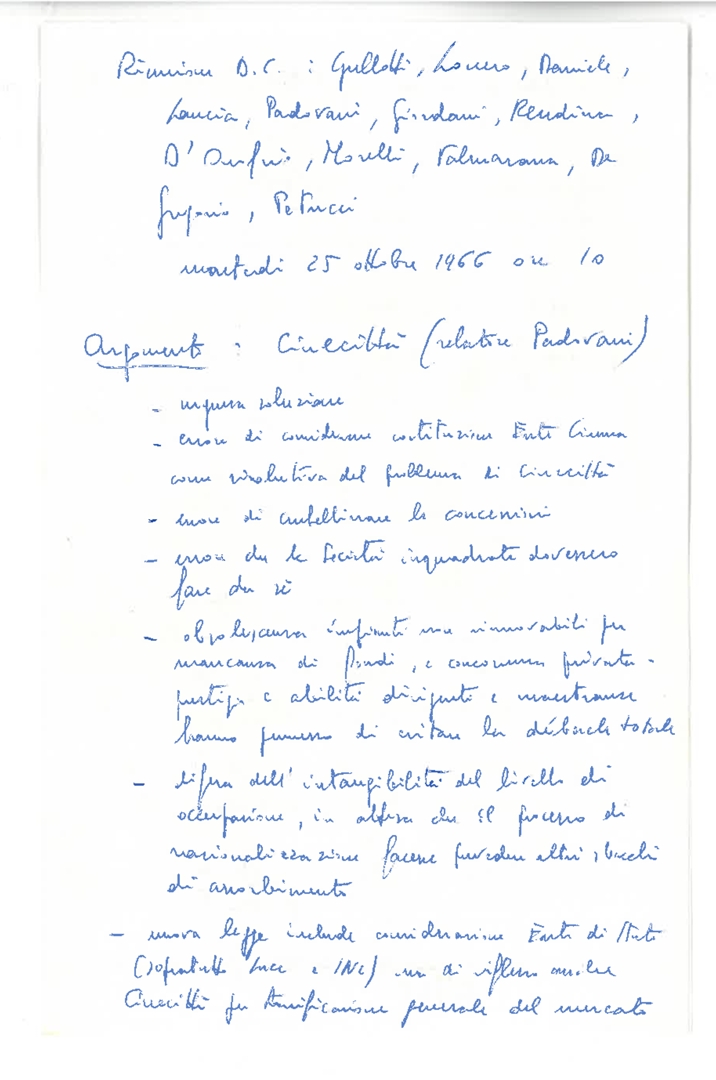 Riunione D.C. : Gullotti, Lonero, Daniele,
Lauria, Padovani, Giordani, Rendina,
D'Onofrio, Morelli, Valmarana, De
Gregorio, Petrucci
martedì 25 ottobre 1966 ore 10
Argomenti : Cinecittà (relatore Padovani)
- urgenza soluzione
- errore di considerare costituzione Ente Cinema
come risolutiva del problema di Cinecittà
- errore di le concessioni
- errore che le Società inquadrate dovessero
fare da sè
- obsolescenza impianti non rinnovabili per
mancanza di fondi, e concorrenza privata -
prestigio e abilità dirigenti e maestranze
hanno permesso di evitare la débacle totale
- difesa dell'intangibilità del livello di
occupazione, in attesa che il processo di
nazionalizzazione facesse prevedere altri sbocchi
di assorbimento
- nuova legge include considerazione Enti di Stato
(soprattutto Luce e INC) ma di riflesso anche
Cinecittà per generale del mercato